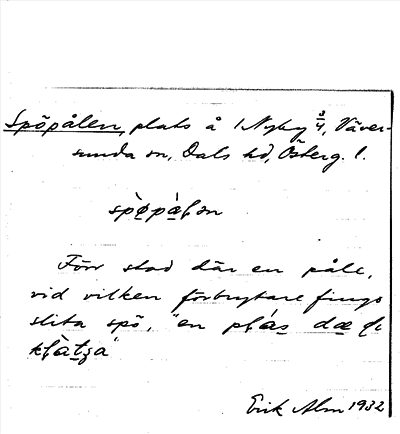 Spöpålen, plats å 1 Nyby 3/4, Väver-
sunda sn, Dals hd, Österg. l.
spø̀pàlən
Förr stod där en påle,
vid vilken förbrytare fingo
slita spö, "en plás dæ
Erik Alm 1932